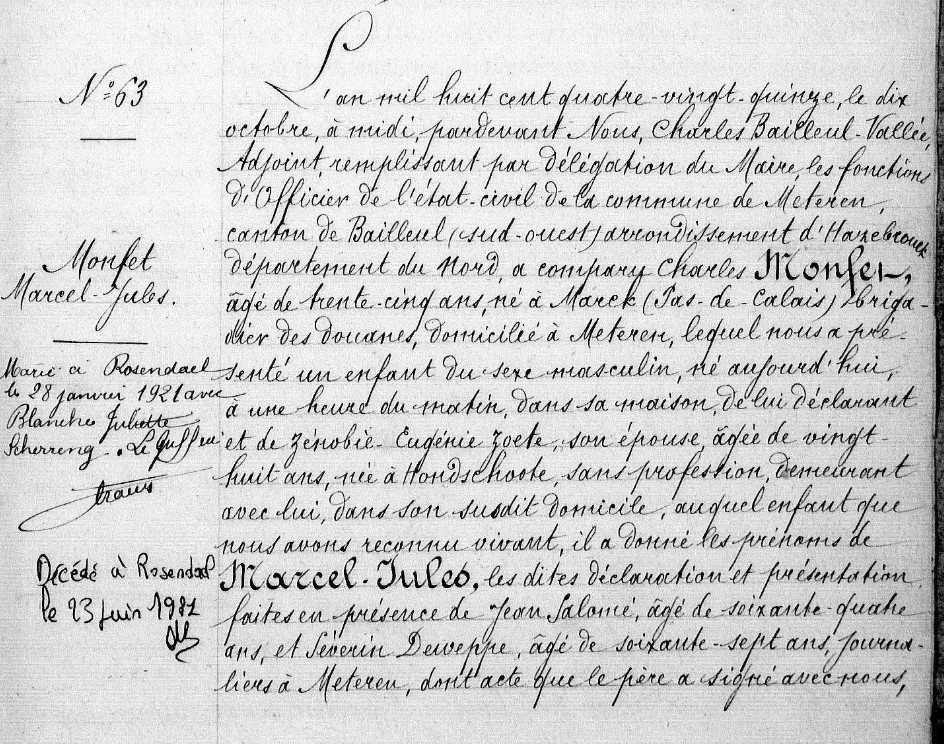 N° 63
Monfet
Marcel-Jules.
Marié à Rosendael
le 28 janvier 1921 avec
Blanche Juliette
Scherreng. Le Greffier
Décédé à Rosendael
le 23 juin 1981
L'an mil huit cent quatre-vingt-quinze, le dix
octobre, à midi, pardevant Nous, Charles Bailleul-Vallée,
Adjoint, remplissant par délégation du Maire, les fonctions
d'Officier de l'état-civil de la commune de Méteren,
canton de Bailleul (sud-ouest) arrondissement d'Hazebrouck
département du Nord, a comparu Charles Monfet,
âgé de trente-cinq ans, né à Marck (Pas-de-Calais) briga-
dier des douanes, domicilié à Méteren, lequel nous a pré-
senté un enfant du sexe masculin, né aujourd'hui,
à une heure du matin, dans sa maison, de lui déclarant
et de Zénobie Eugénie Zoete, son épouse, âgée de vingt-
huit ans, née à Hondschoote, sans profession, demeurant
avec lui, dans son susdit domicile, auquel enfant que
nous avons reconnu vivant, il a donné les prénoms de
Marcel-Jules, les dites déclaration et présentation
faites en présence de Jean Salomé, âgé de soixante-quatre
ans, et Séverin Deweppe, âgé de soixante-sept ans, journa-
liers à Méteren, dont acte que le père a signé avec nous,